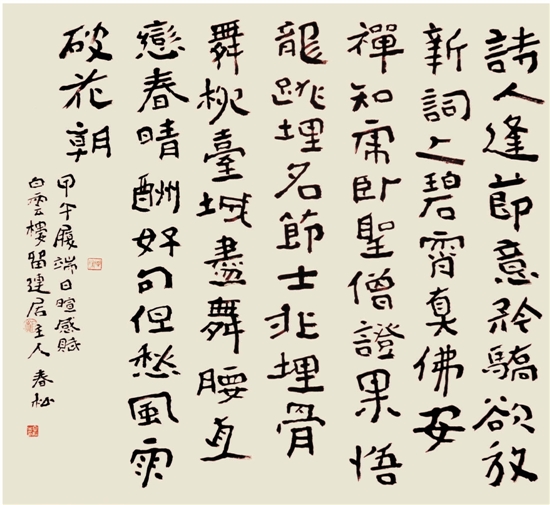 詩人逢節意矜驕欲放
新詞上碧霄真佛安
禪知卧聖僧證果悟
龍跳埋名節士非埋骨
舞臺城盡舞腰直
戀春晴酬好句但愁風雨
破花朝
甲午履端日暄感賦
白雲樓留連居主人春松